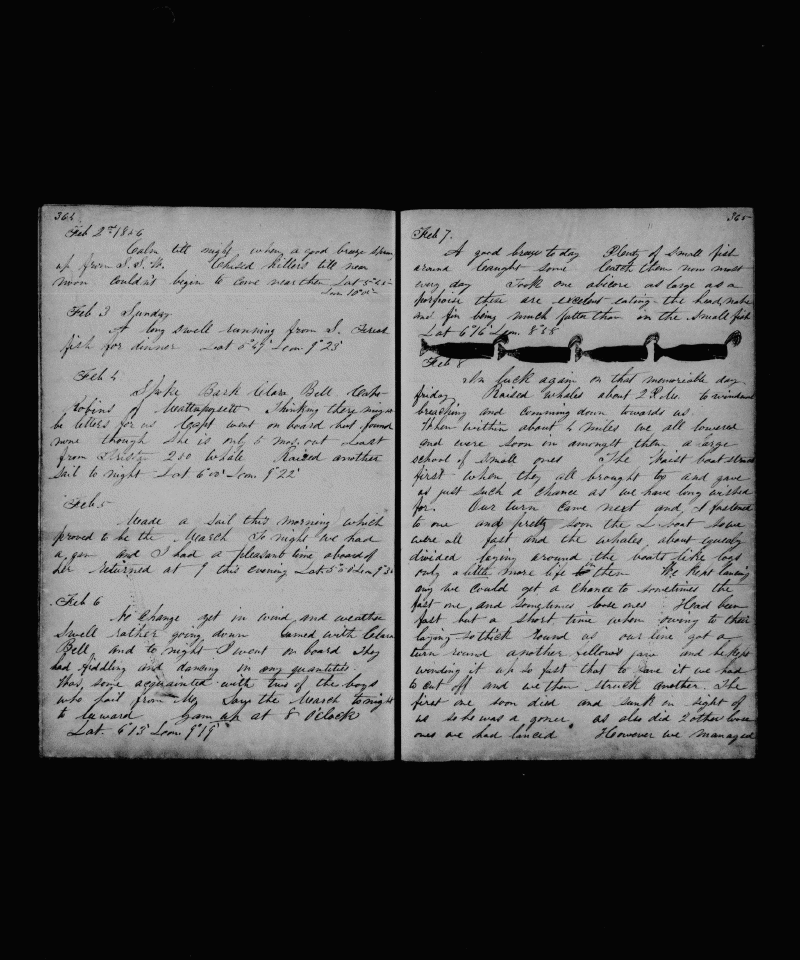 364
Feb 2nd 1856
Calm till night when a good breeze sprung
up from S.S.W. Chased Killers till near
noon couldn't begin to come near them Lat 5°
Lon 10°
Feb 3 Sunday
A long swell running from S. Fresh
fish for dinner Lat 5°49' Lon. 9°23'
Feb 4
Spoke Bark Clara Bell Capt
Robins of Mattapoisett Thinking there might
be letters for us Capt went on board but found
none though she is only 6 mos. out Last
from 200 Whale Raised another
sail to night Lat 6°00' Lon. 9°22'
Feb 5
Made a sail this morning which
proved to be the March To night we had
a gam and I had a pleasant time aboard of
her Returned at 9 this evening Lat 5° Lon. 9°
Feb 6
No change yet in wind and weather
Swell rather going down Gamed with Clara
Bell, and to night I went on board They
had fiddling and dancing in any quantities.
Was some acquainted with two of the boys
who hail from Me, Saw the March to night
to leeward Gam up at 8 O'clock
Lat. 6°13' Lon. 9°19'
365
Feb 7.
A good breeze to day Plenty of small fish
around Caught some Catch them now most
every day Took one albicore as large as a
porpoise these are excelent eating the head, nape
and fin being much fatter than in the small fish
Lat 6°16' Lon. 8°58'
Feb 8
In luck again on that memorable day
friday. Raised whales about 2 Miles to windward
breaching and comming down towards us.
When within about 4 miles we all lowered
and were soon in amongst them a large
school of small ones The Waist boat struck
first when they all brought to and gave
us just such a chance as we have long wished
for. Our turn came next and I fastened
to one and pretty soon the L boat so we
were all fast and the whales about equaly
divided laying around the boats like logs
only a little more life in them We kept lancing
any we could get a chance to sometimes the
fast one, and sometimes loose ones Had been
fast but a short time when owing to their
laying so thick round us our line got a
turn round another fellow's jaw and he kept
winding it up so fast that to save it we had
to cut off and we then struck another. The
first one soon died and sunk in sight of
us so he was a goner, as also did 2 other loose
ones we had lanced However we managed